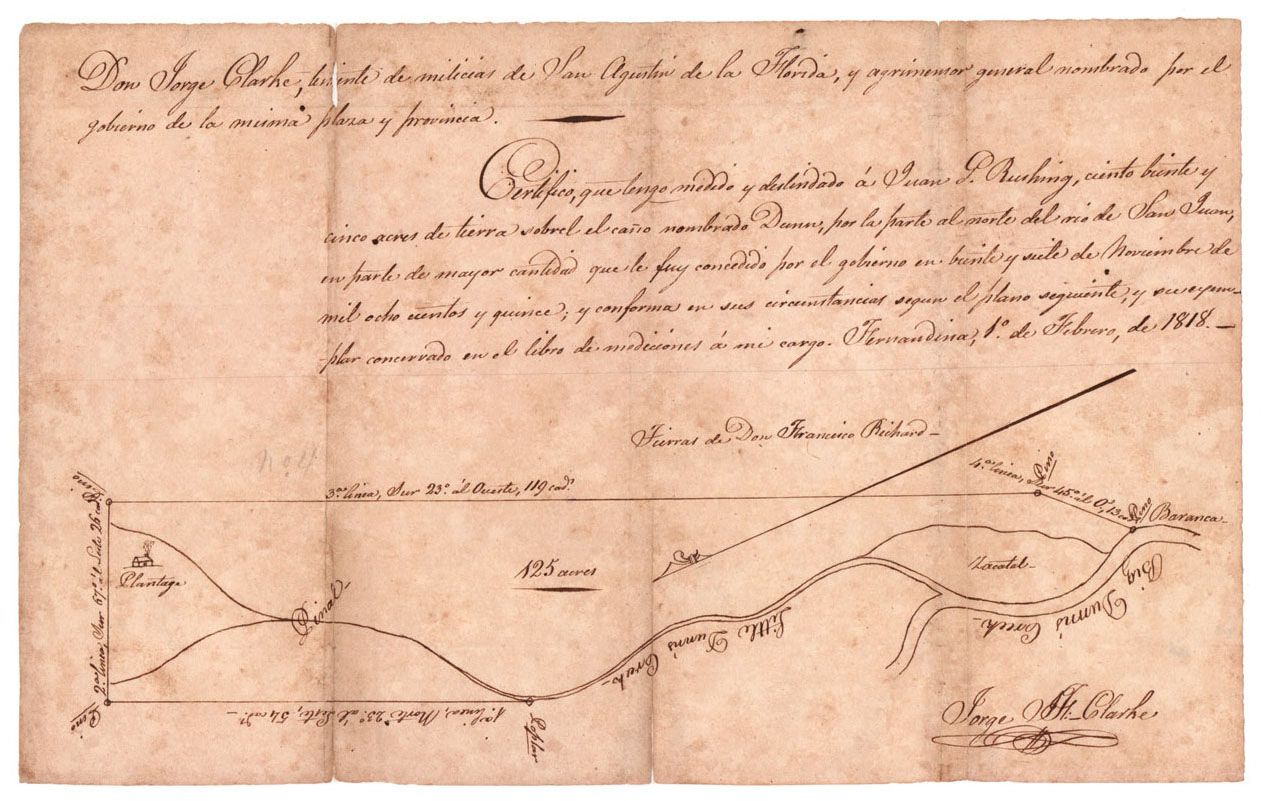 Don Jorge Clarke, teniente de milicias de San Agustin de la Florida, y agrimensor general nombrado por el
gobierno de la misma plaza y provincia.
Certifico, que tengo medido y deslindado á Juan G. Rushing, ciento beinte y
cinco acres de tierra sobrel el caño nombrado Dunn, por la parte al norte del rio de San Juan,
en parte de mayor cantidad que le fuy concedido por el gobierno en beinte y siete de Noviembre de
mil ocho cientos y quince; y conforma en sus circunstancias segun el plano seguiente, y su exem-
-plar concerrado en el libro de mediciones á mi cargo. Fernandina, 1º. de Febrero, de 1818.
Tierras de Don Francisco Richard
No 4
Pino
3ª. linea, Sur 23º. al Oueste, 119 cads.
4ª. linea, Sur 45º. al O. 13 cads.
Pino
Pino
Baranca
2ª. linea, Sur 67º. al Leste 26 cads.
Plantage
125 acres
Zacatal
Pinal
Little Dunn's Creek
Big Dunn's Creek
Pino
1ª. linea, Norte 23º. al Leste, 54 cads.
Poplar
Jorge J. F. Clarke